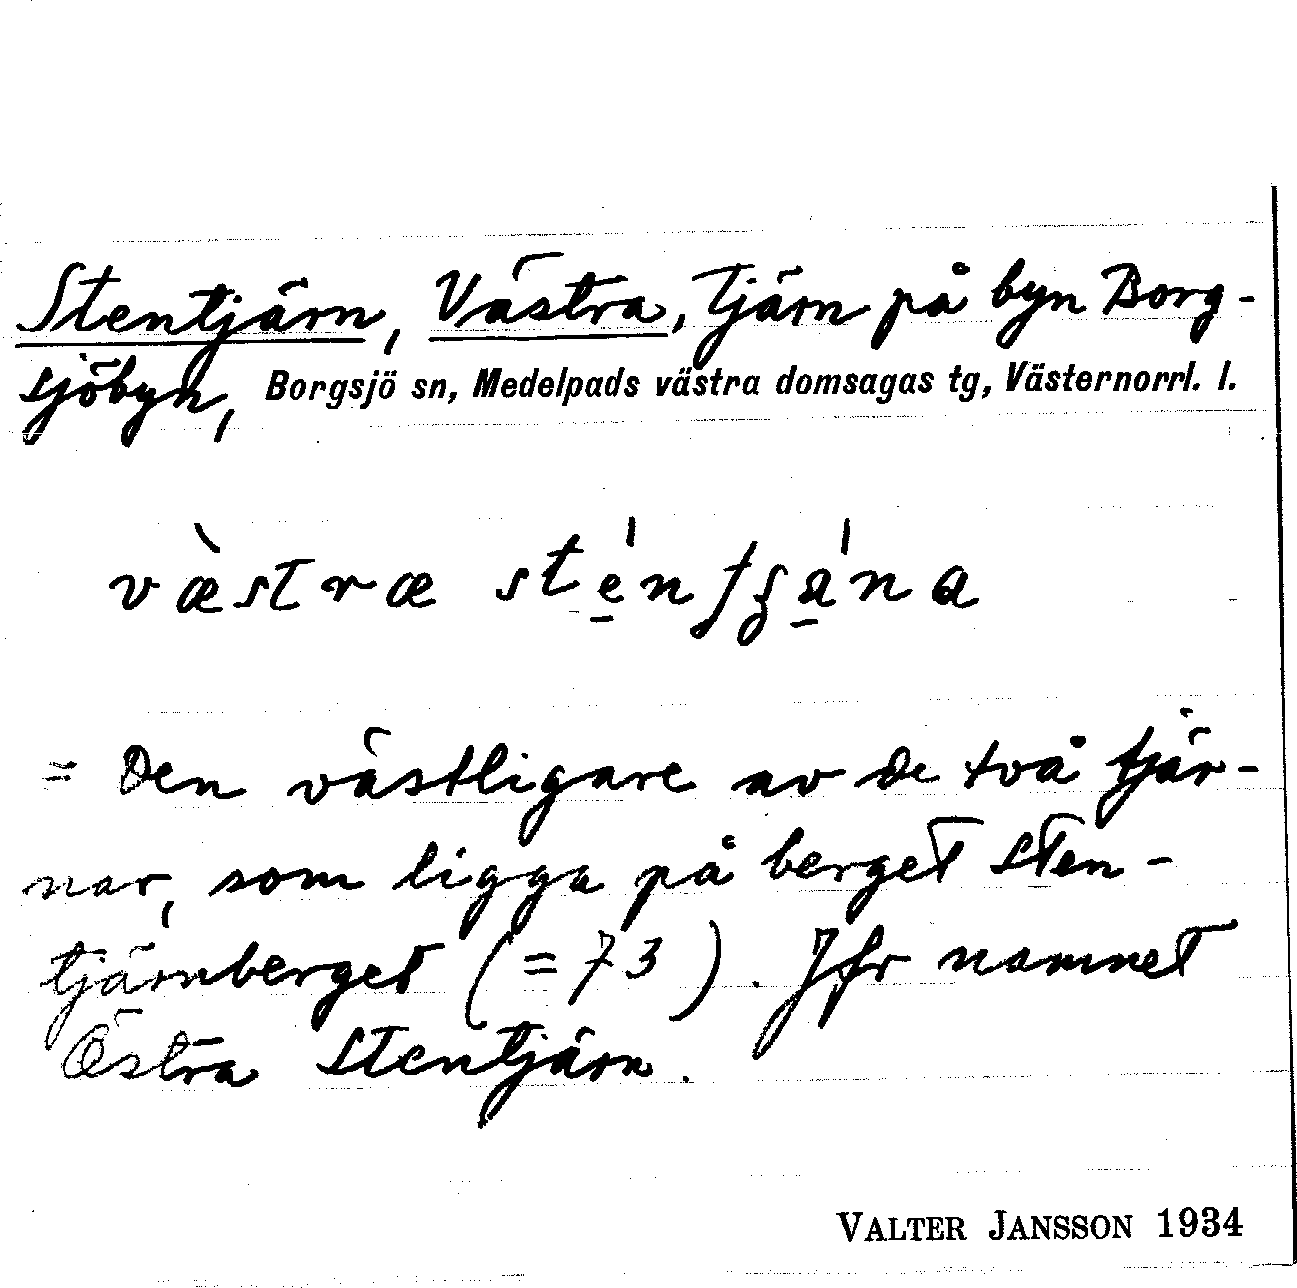 Stentjärn, Västra, Tjärn på byn Borg-
sjöbyn, Borgsjö sn, Medelpads västra domsagas tg, Västernorrl. l.
væ̀stræ
= Den västligare av de två tjär-
nar, som ligga på berget Sten-
tjärnberget (= 73). Jfr namnet
Östra Stentjärn.
VALTER JANSSON 1934